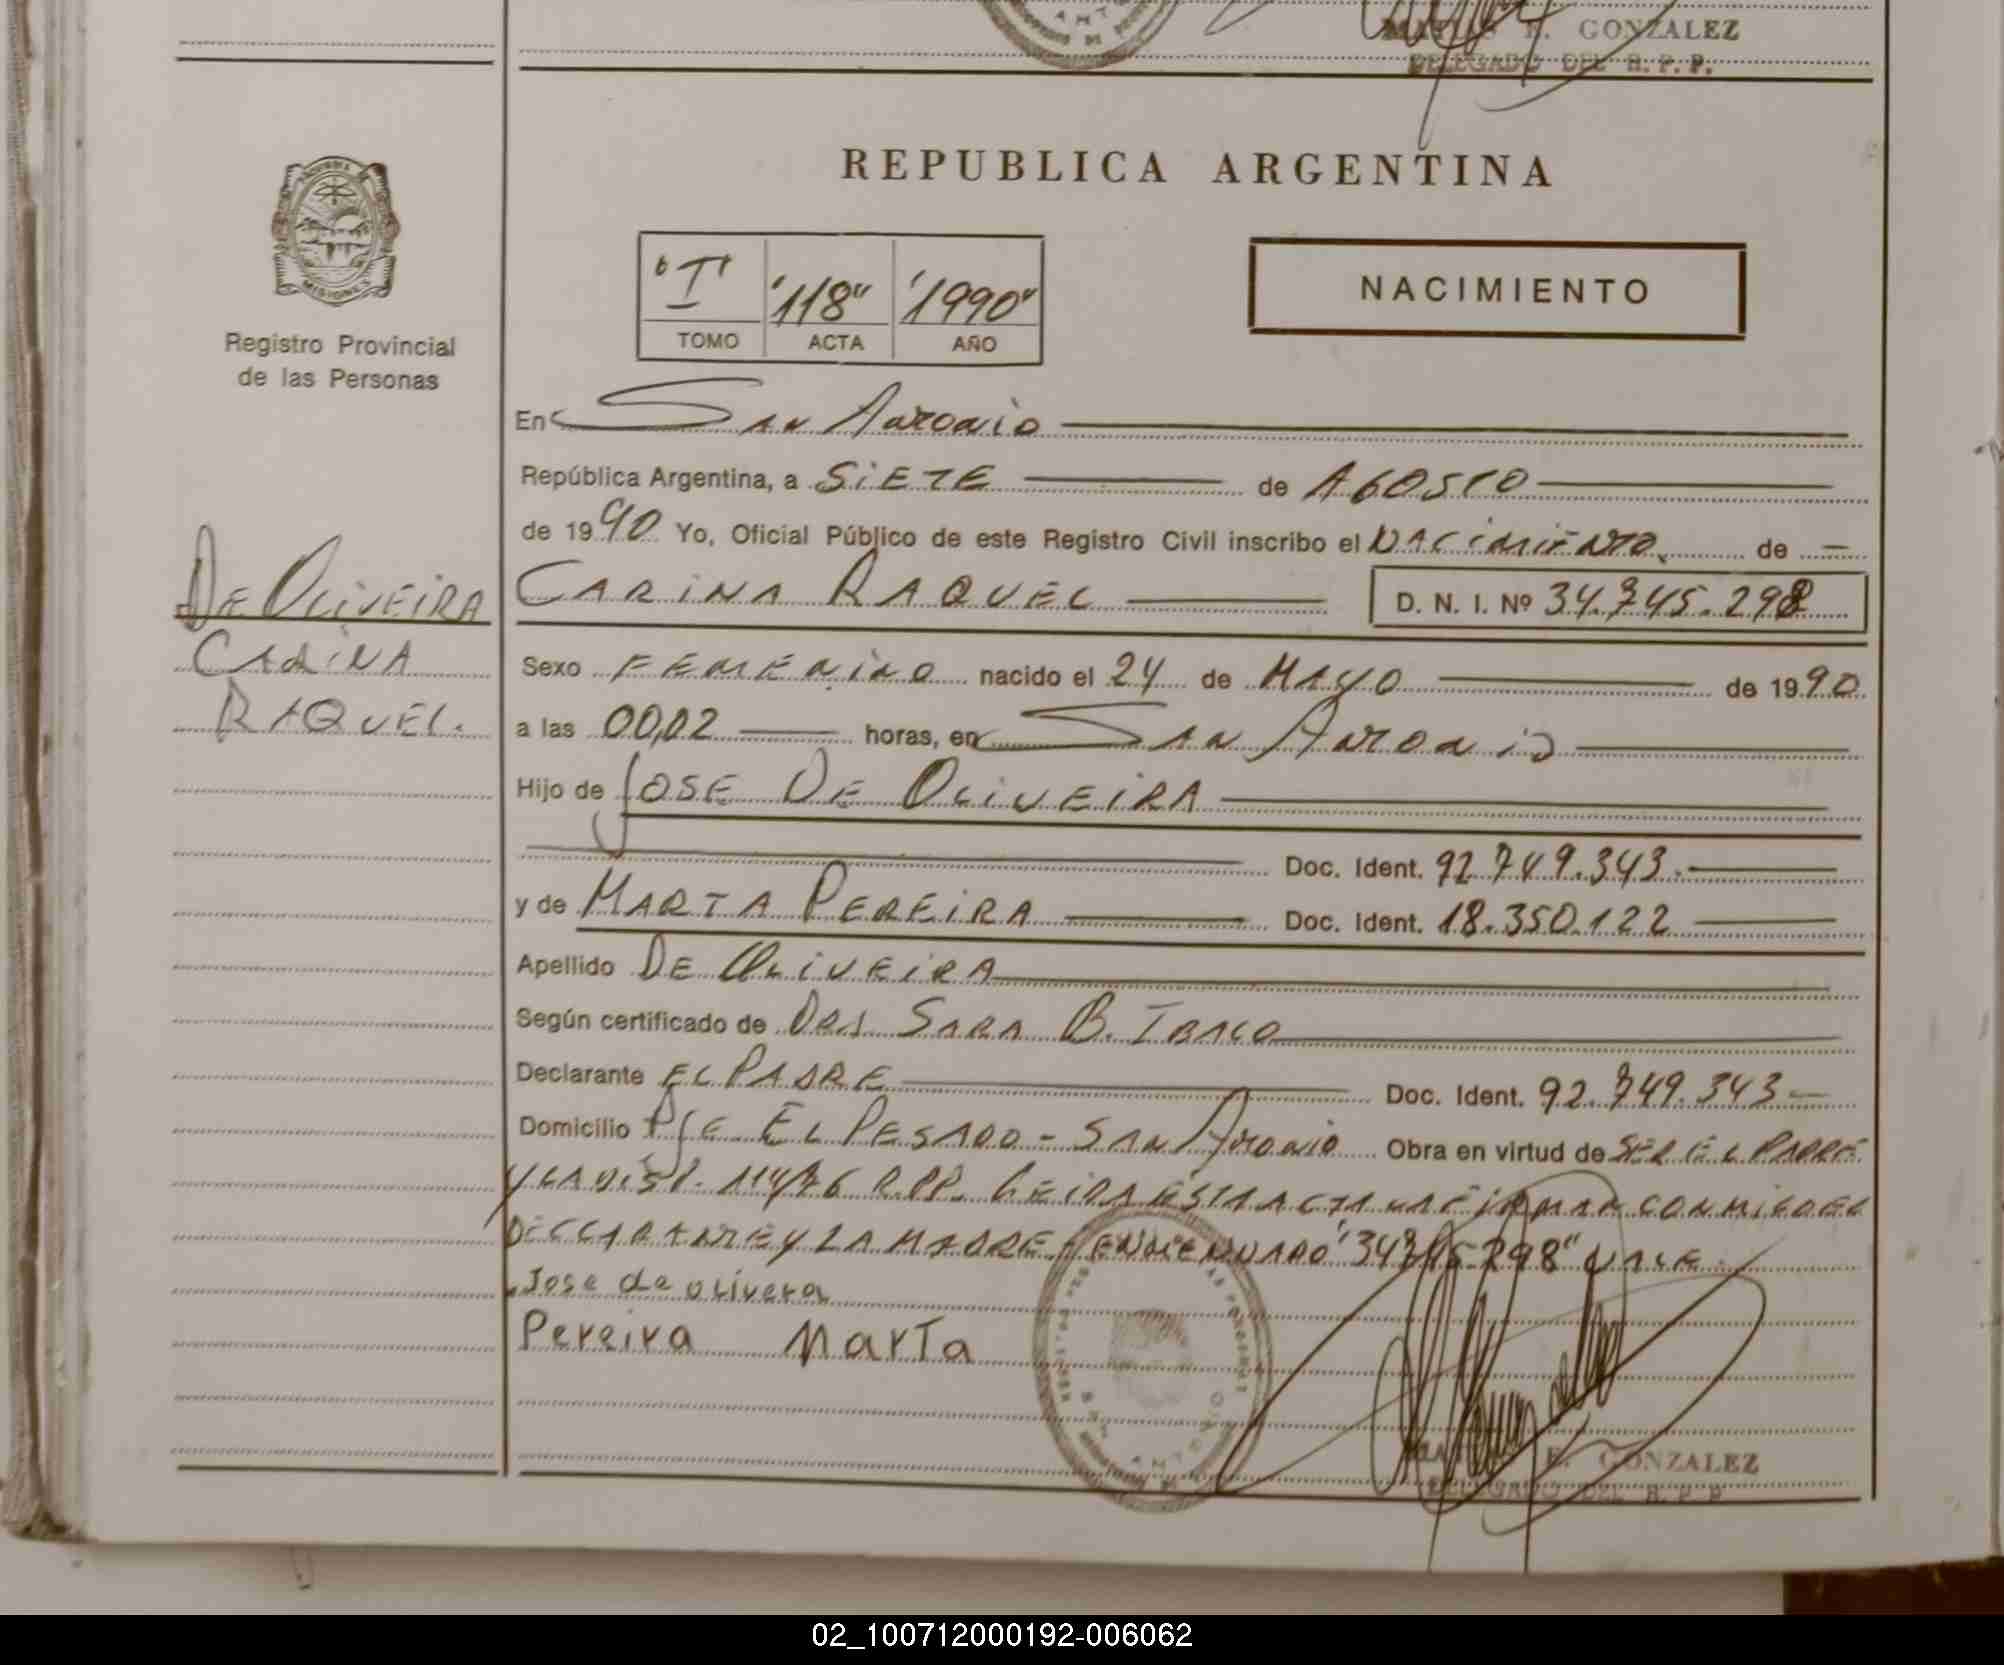 GONZALEZ
DELEGADO DEL R. P. P.
REPUBLICA ARGENTINA
MISIONES
Registro Provincial
de las Personas
"I" "118" "1990"
TOMO ACTA AÑO
NACIMIENTO
En San Antonio
República Argentina, a SiETE de AGOSTO
de 1990 Yo, Oficial Público de este Registro Civil inscribo el NACimiENTO de
CARiNA RAQUEL D. N. I. Nº 34.745.298
DE OLiVEiRA
CARiNA
RAQUEL.
Sexo FEMENiNO nacido el 24 de MAyO de 1990
a las 00,02 horas, en SAN ANTONiO
Hijo de JOSE DE OLiVEiRA
Doc. Ident. 92.749.343.
y de MARTA PEREiRA Doc. Ident. 18.350.122
Apellido DE OLiVEiRA
Según certificado de DRA SARA B.
Declarante EL PADRE Doc. Ident. 92.749.343
Domicilio PJE EL PESADO - SAN ANTONIO Obra en virtud de SER EL PADRE
Y LA DiSP. 114/76 R.P.P. LEIDA ESTA ACTA LA FiRMAN CONMiGO EL
DECLARANTE Y LA MADRE. ENMENDADO "34.745.298" VALE.
Jose de olivera
Pereira MarTa
E. GONZALEZ
DELEGADO DEL R. P. P.
02_100712000192-006062